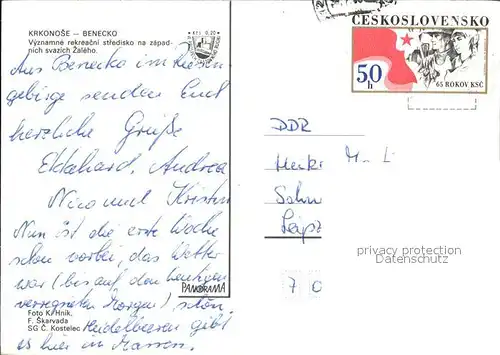 KRKONOŠE — BENECKO
Významne rekreační středisko na západ-
ních svazích Žalého.
Kčs 0,20
ČESKOSLOVENSKO
50h
65 ROKOV KSČ
Aus Benecko im Riesen
gebirge senden Euch
herzliche Grüße
Ekkehard, Andrea
Nico und Kristin
Nun ist die erste Woche
schon vorbei, das Wetter
war (bis auf den heutigen
verregneten Morgen) schön
Heidelbeeren gibt
es hier in Massen.
PANORAMA
Foto K. Hník,
F. Škarvada
SG Č. Kostelec
DDR
M L
Leipz
7 0
privacy protection
Datenschutz